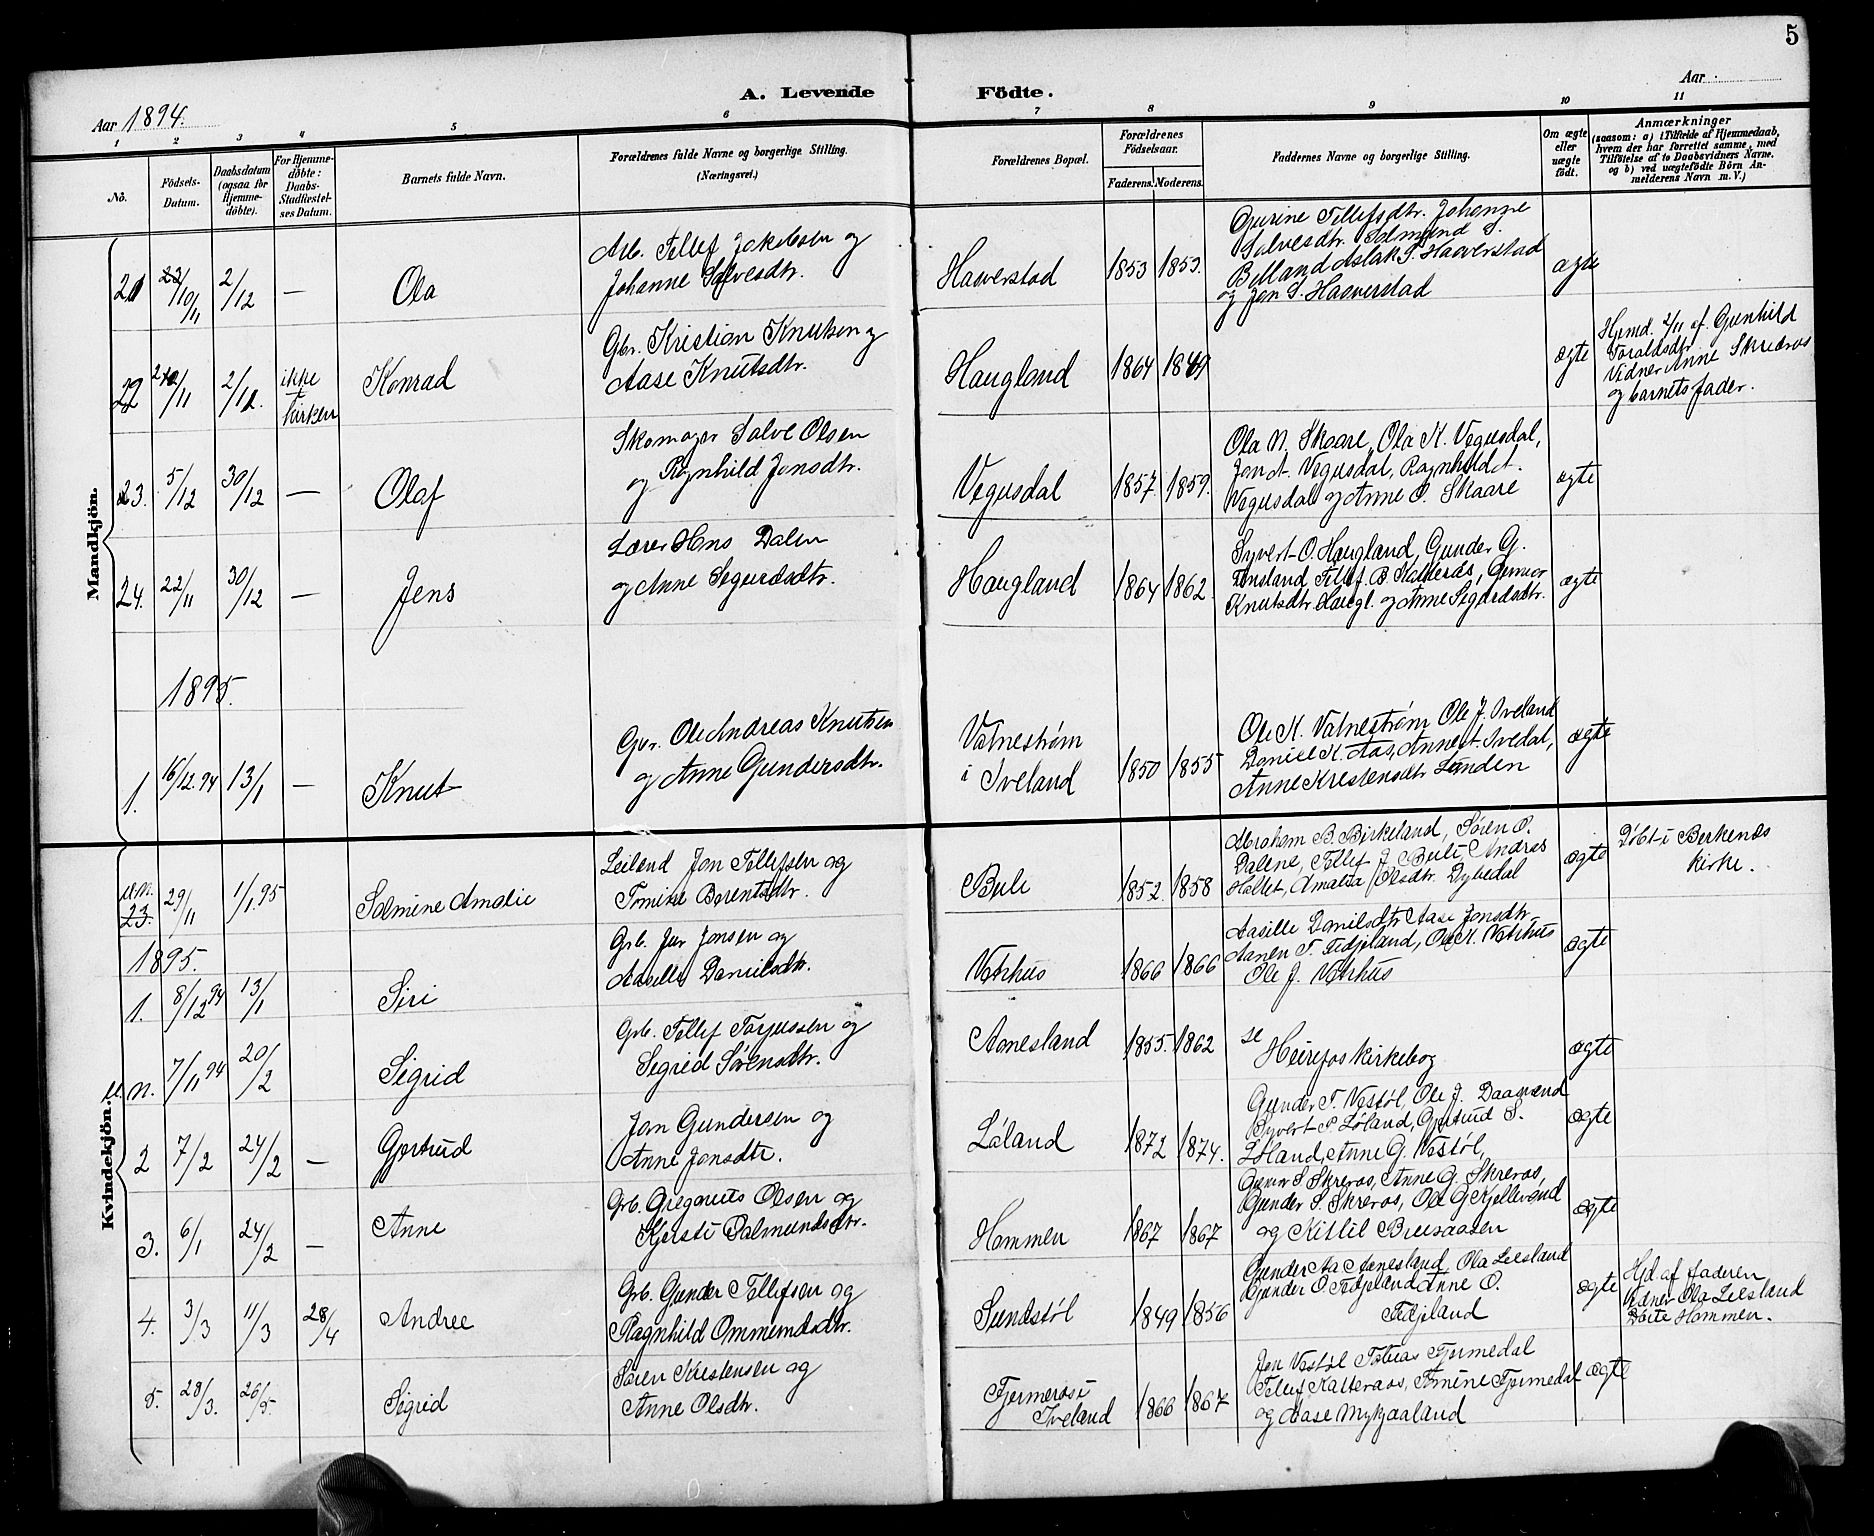 5
Aar 1894.
A. Levende Födte.
Aar
1 2 3 4 5 6 7 8 9 10 11
No.
Födsels-
Datum.
Daabsdatum
(ogsaa for
Hjemme-
döbte).
For Hjemme-
döbte:
Daabs-
Stadfæstel-
ses Datum.
Barnets fulde Navn.
Forældrenes fulde Navne og borgerlige Stilling.
(Næringsvei.)
Forældrenes Bopæl.
Forældrenes
Födselsaar.
Faderens. Moderens.
Faddernes Navne og borgerlige Stilling.
Om ægte
eller
uægte
födt.
Anmærkninger
(saasom: a) i Tilfælde af Hjemmedaab,
hvem der har forrettet samme, med
Tilföielse af to Daabsvidners Navne.
og b) ved uægtefödte Börn An-
melderens Navn m. V.)
Mandkjön.
21 10/11 2/12 — Ola
Arb. Tellef Jakobsen og
Johanne Salvesdtr.
Haaverstad 1853 1853.
Gurine Tellefsdtr. Johanne
Salvesdtr. Salmund S.
Birland Aslak T. Haaverstad
og Jon S. Haaverstad
ægte
22 /11 2/12. ikke
i
kirken
Konrad
Gbr. Kristian Knutsen og
Aase Knutsdtr.
Haugland 1864 1849
ægte
Hjemd. 2/11 af Gunhild
Toraldsdtr
Vidner Anne Skreros
og barnets fader.
23. 5/12 30/12 — Olaf
Skomager Salve Olsen
og Ragnhild Jonsdtr.
Vegusdal 1857. 1859.
Ola N. Skaare, Ola K. Vegusdal,
Jon A. Vegusdal, Ragnhild A.
Vegusdal og Anne O. Skaare
ægte
24. 22/11 30/12 — Jens
Lærer Hans Dalen
og Anne Sigurdsdtr.
Haugland 1864 1862.
Syvert O. Haugland, Gunder G.
Ensland Tellef B Kalteraas, Gunvor
Knutsdtr Haugl. og Anne Sigurdsdtr.
ægte
1895.
1. 16/12. 94 13/1 — Knut
Gbr. Ole Andreas Knutsen
og Anne Gundersdtr.
Vatnestrøm
i Iveland
1850 1855
Ole K. Vatnestrøm Ole J. Iveland
Daniel K. Aas, Anne A. Ivedal,
Anne Kristensdtr Lunden
ægte
Kvindekjön.
u. n.
23. 29/11 1/1. 95 Salmine Amalie
Leilend Jon Tellefsen og
Tomine Berentsdtr.
Beli 1852. 1858
Abraham B. Birkeland, Søren O.
Dalene, Tellef J. Beli Andras
Hallet, Amalia Olsdtr. Dybedal
ægte
Døbt i Berkenæs
kirke.
1895.
1. 8/12 94 13/1 Siri
Grb. Jens Jonsen og
Aasille Danielsdtr.
Vatshus 1866 1866
Aasille Danielsdtr Aase Jonsdtr.
Aanen T. Fidjeland, Ole K. Vatshus
Ole J. Vatshus
ægte
u. n. 7/11 94 20/2 Sigrid
Grb. Tellef Torjussen og
Sigrid Sørensdtr.
Aanesland 1855. 1862
se
Heirefos kirkebog
ægte
2 7/2 24/2 — Gjertrud
Jon Gundersen og
Anne Jonsdtr.
Løland 1872 1874.
Gunder T. Vestøl, Ole J. Daasvand
Syvert S. Løland, Gjertrud S.
Løland, Anne G. Vestøl,
ægte
3. 6/1 24/2 — Anne
Grb. Gregorius Olsen og
Kjersti Salmundsdtr.
Hommen 1867 1867
Gunvor S Skreros, Anne G. Skreros,
Gunder S. Skreros, Ole G Kjellevand
og Kittil Bruaasen
ægte
4. 3/3 11/3 28/4 Andree
Grb. Gunder Tellefsen og
Ragnhild Ommundsdtr.
Sundstøl 1849 1856
Gunder Aa Aanesland, Ola Leesland
Gunder O. Fidjeland Anne O.
Fidjeland
ægte
Hjd. af faderen
Vidner Ola Leesland
Dorte Hommen.
5. 28/3. 26/5. Sigrid
Søren Kristensen og
Anne Olsdtr.
Fjermeros i
Iveland
1866 1867
Jon Vestøl Tobias Fjermedal
Tellef Kalteraas, Tomine Fjermedal
og Aase Mykjaaland
ægte